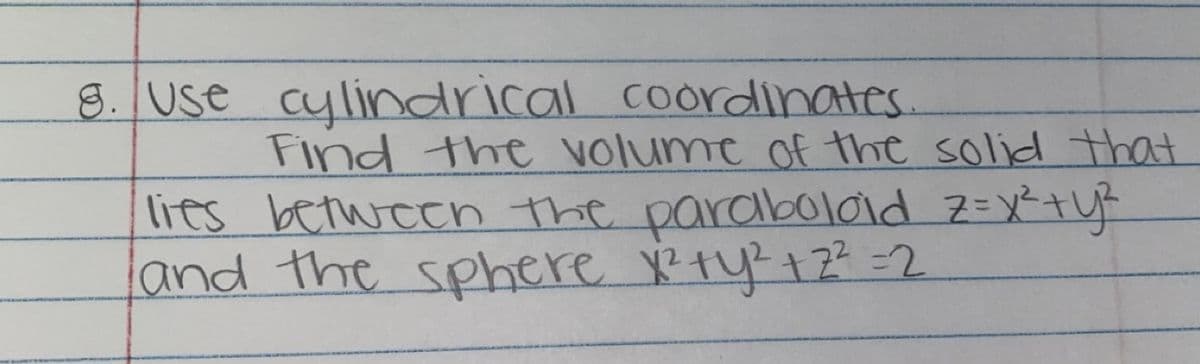 8. Use cylindrical coordinates.
Find the volume of the solid that
lies between the paraboloid z=x²+y²
and the sphere x²+y²+z²=2